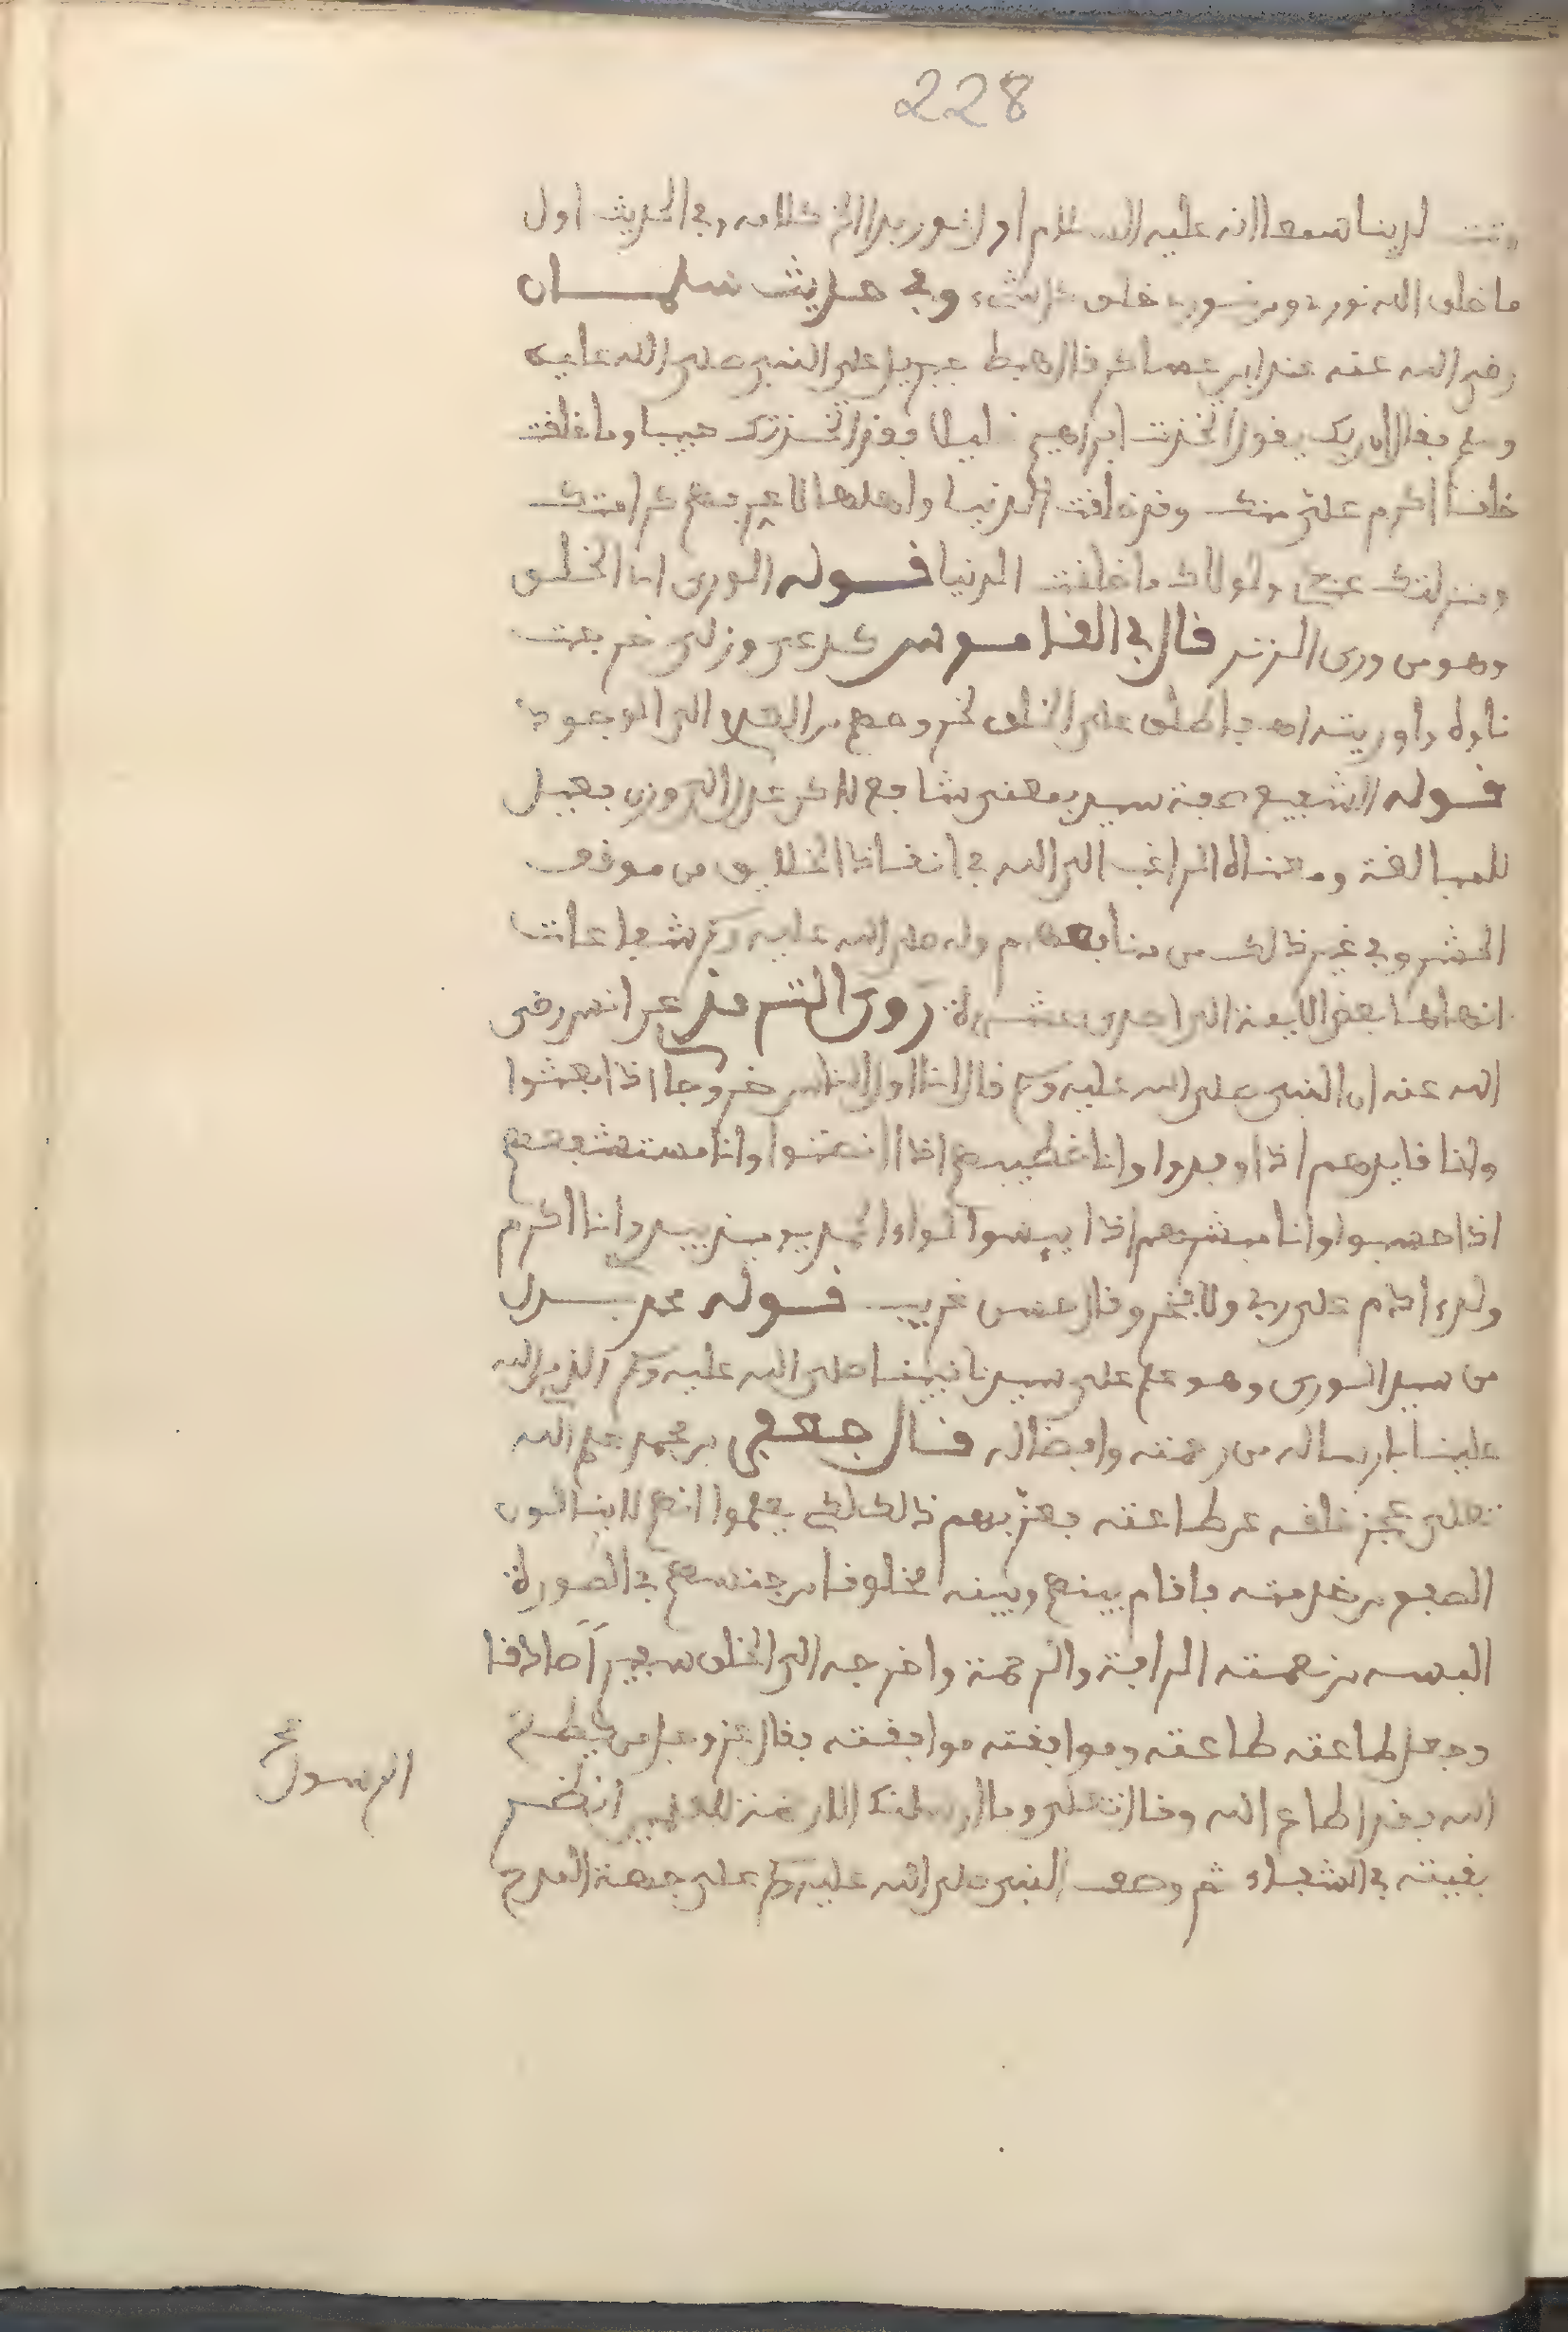 228
لدينا سمعا انه عليه السلام اول نور بدا الخ كلامه وفي الحديث اول
ما خلق الله نوره ومن نوره خلق كل شيء وفي حديث سلمان
رضي الله عنه عند ابن عساكر قال هبط جبريل على النبي صلى الله عليه
وسلم فقال ان ربك يقول ان اتخذت ابراهيم خليلا فقد اتخذتك حبيبا وما خلقت
خلقا اكرم علي منك ولقد خلقت الدنيا واهلها لاعرفهم كرامتك
ومنزلتك عندي ولولاك ما خلقت الدنيا قوله الورى اي الخلق
وهو من ورى الزند قال في القاموس كوعى وولي خرجت
ناره واوريته اهـ فاطلق على الخلق لخروجهم من العدم الى الوجود
قوله الشفيع صفة سيد بمعنى شافع لاكن عدل الى وزن فعيل
للمبالغة ومعناه الراغب الى الله في انقاذ الخلايق من موقف
الحشر وفي غير ذالك من منافعهم وله صلى الله عليه وسلم شفاعات
انهاها بعض الايمة الى احدى عشرة روى الترمذي عن انس رضي
الله عنه ان النبي صلى الله عليه وسلم قال انا اول الناس خروجا اذا بعثوا
وانا قايدهم اذا وفدوا وانا خطيبهم اذا انصتوا وانا مستشفعهم
اذا حبسوا وانا مبشرهم اذا ييسوا لواء الحمد يوميذ بيدي وانا اكرم
ولد ءادم على ربي ولا فخر وقال حسن غريب قوله محمد بدل
من سيد الورى وهو علم على سيدنا نبينا صلى الله عليه وسلم الذي من الله
علينا بارساله من رحمته وافضاله قال جعفر بن محمد علم الله
تعلى عجز خلقه عن طاعته فعرفهم ذالك لكي يعلموا انهم لا ينالون
الصفو من خدمته فاقام بينهم وبينه مخلوقا من جنسهم في الصورة
البسه من نعمته الرافة والرحمة واخرجه الى الخلق سفيرا صادقا
وجعل طاعته طاعته وموافقته موافقته فقال عز وجل من يطع
الرسول صح
الله فقد اطاع الله وقال تعلى وما ارسلنك الا رحمة للعلمين انظر
بقيته في الشفاء ثم وصف النبي صلى الله عليه وسلم على جهة المدح